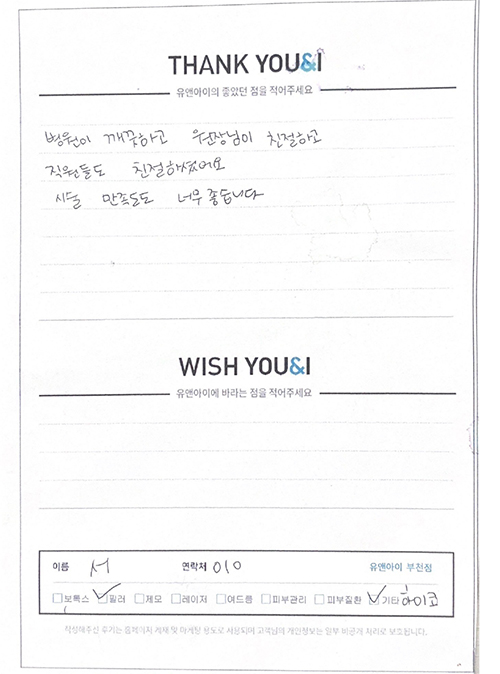 THANK YOU&I
유앤아이의 좋았던 점을 적어주세요
병원이 깨끗하고 원장님이 친절하고
직원들도 친절하셨어요
시술 만족도도 너무 좋습니다
WISH YOU&I
유앤아이에 바라는 점을 적어주세요
이름 서 연락처 010 유앤아이 부천점
보톡스 필러 제모 레이저 여드름 피부관리 피부질환 기타 하이코
작성해주신 후기는 홈페이지 게재 및 마케팅 용도로 사용되며 고객님의 개인정보는 일부 비공개 처리로 보호됩니다.